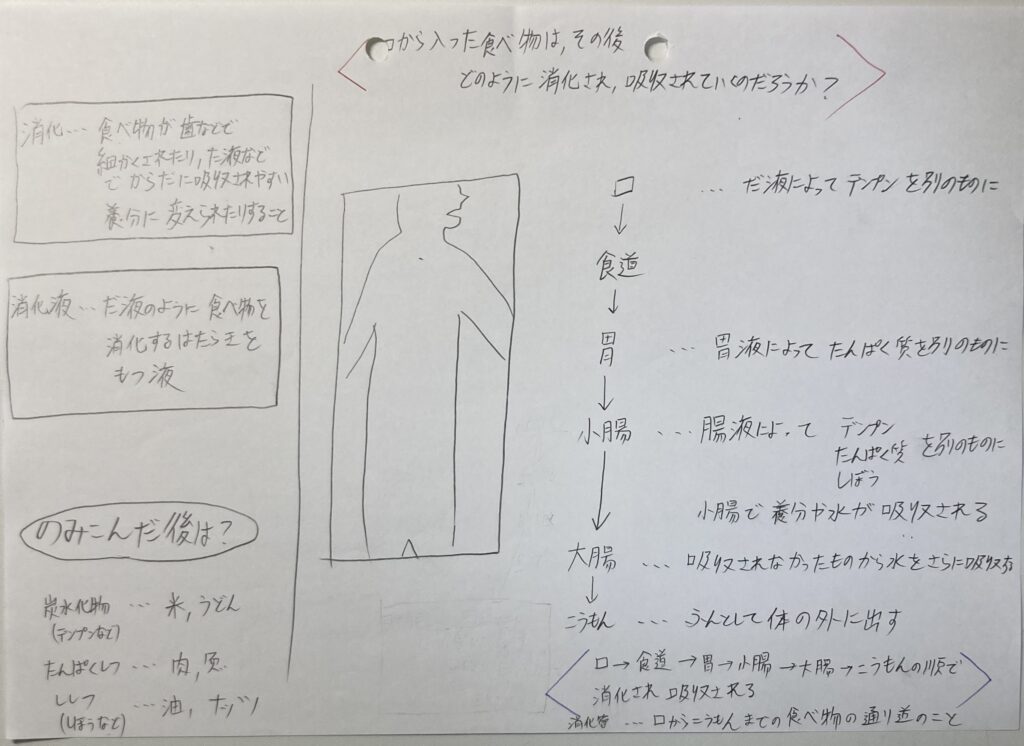 口から入った食べ物は,その後
どのように消化され,吸収されていくのだろうか?
消化… 食べ物が歯などで
細かくされたり,だ液など
でからだに吸収されやすい
養分に変えられたりすること
消化液…だ液のように食べ物を
消化するはたらきを
もつ液
のみこんだ後は?
炭水化物 … 米,うどん
(デンプンなど)
たんぱくしつ … 肉,魚
ししつ … 油,ナッツ
(しぼうなど)
口 … だ液によってデンプンを別のものに
↓
食道
↓
胃 … 胃液によってたんぱく質を別のものに
↓
小腸 … 腸液によって デンプン
たんぱく質 を別のものに
しぼう
小腸で養分や水が吸収される
↓
大腸 … 吸収されなかったものから水をさらに吸収する
↓
こうもん … うんとして体の外に出す
口→食道→胃→小腸→大腸→こうもんの順で
消化され吸収される
消化管 … 口からこうもんまでの食べ物の通り道のこと